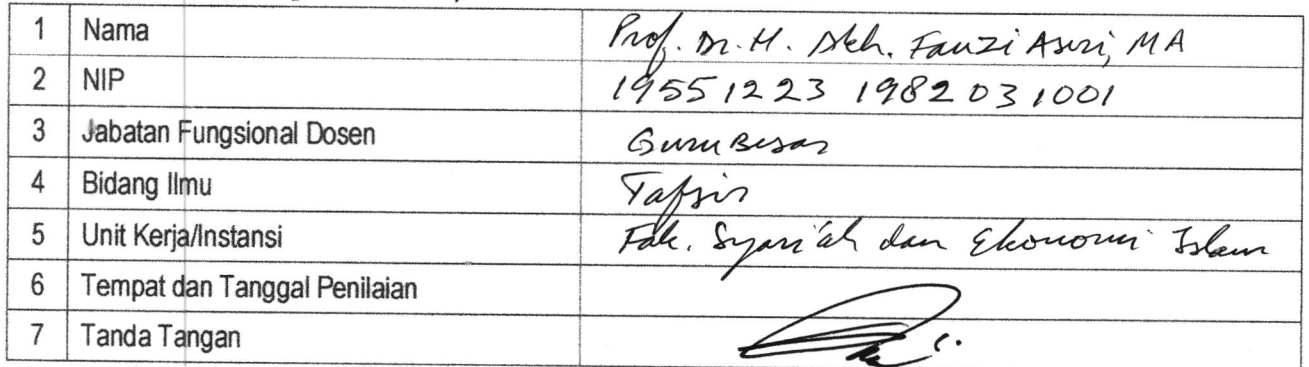 1 Nama Prof. Dr. H. Akh. Fauzi Aseri, MA
2 NIP 19551223 198203 1001
3 Jabatan Fungsional Dosen Guru Besar
4 Bidang Ilmu Tafsir
5 Unit Kerja/Instansi Fak. Syari'ah dan Ekonomi Islam
6 Tempat dan Tanggal Penilaian
7 Tanda Tangan